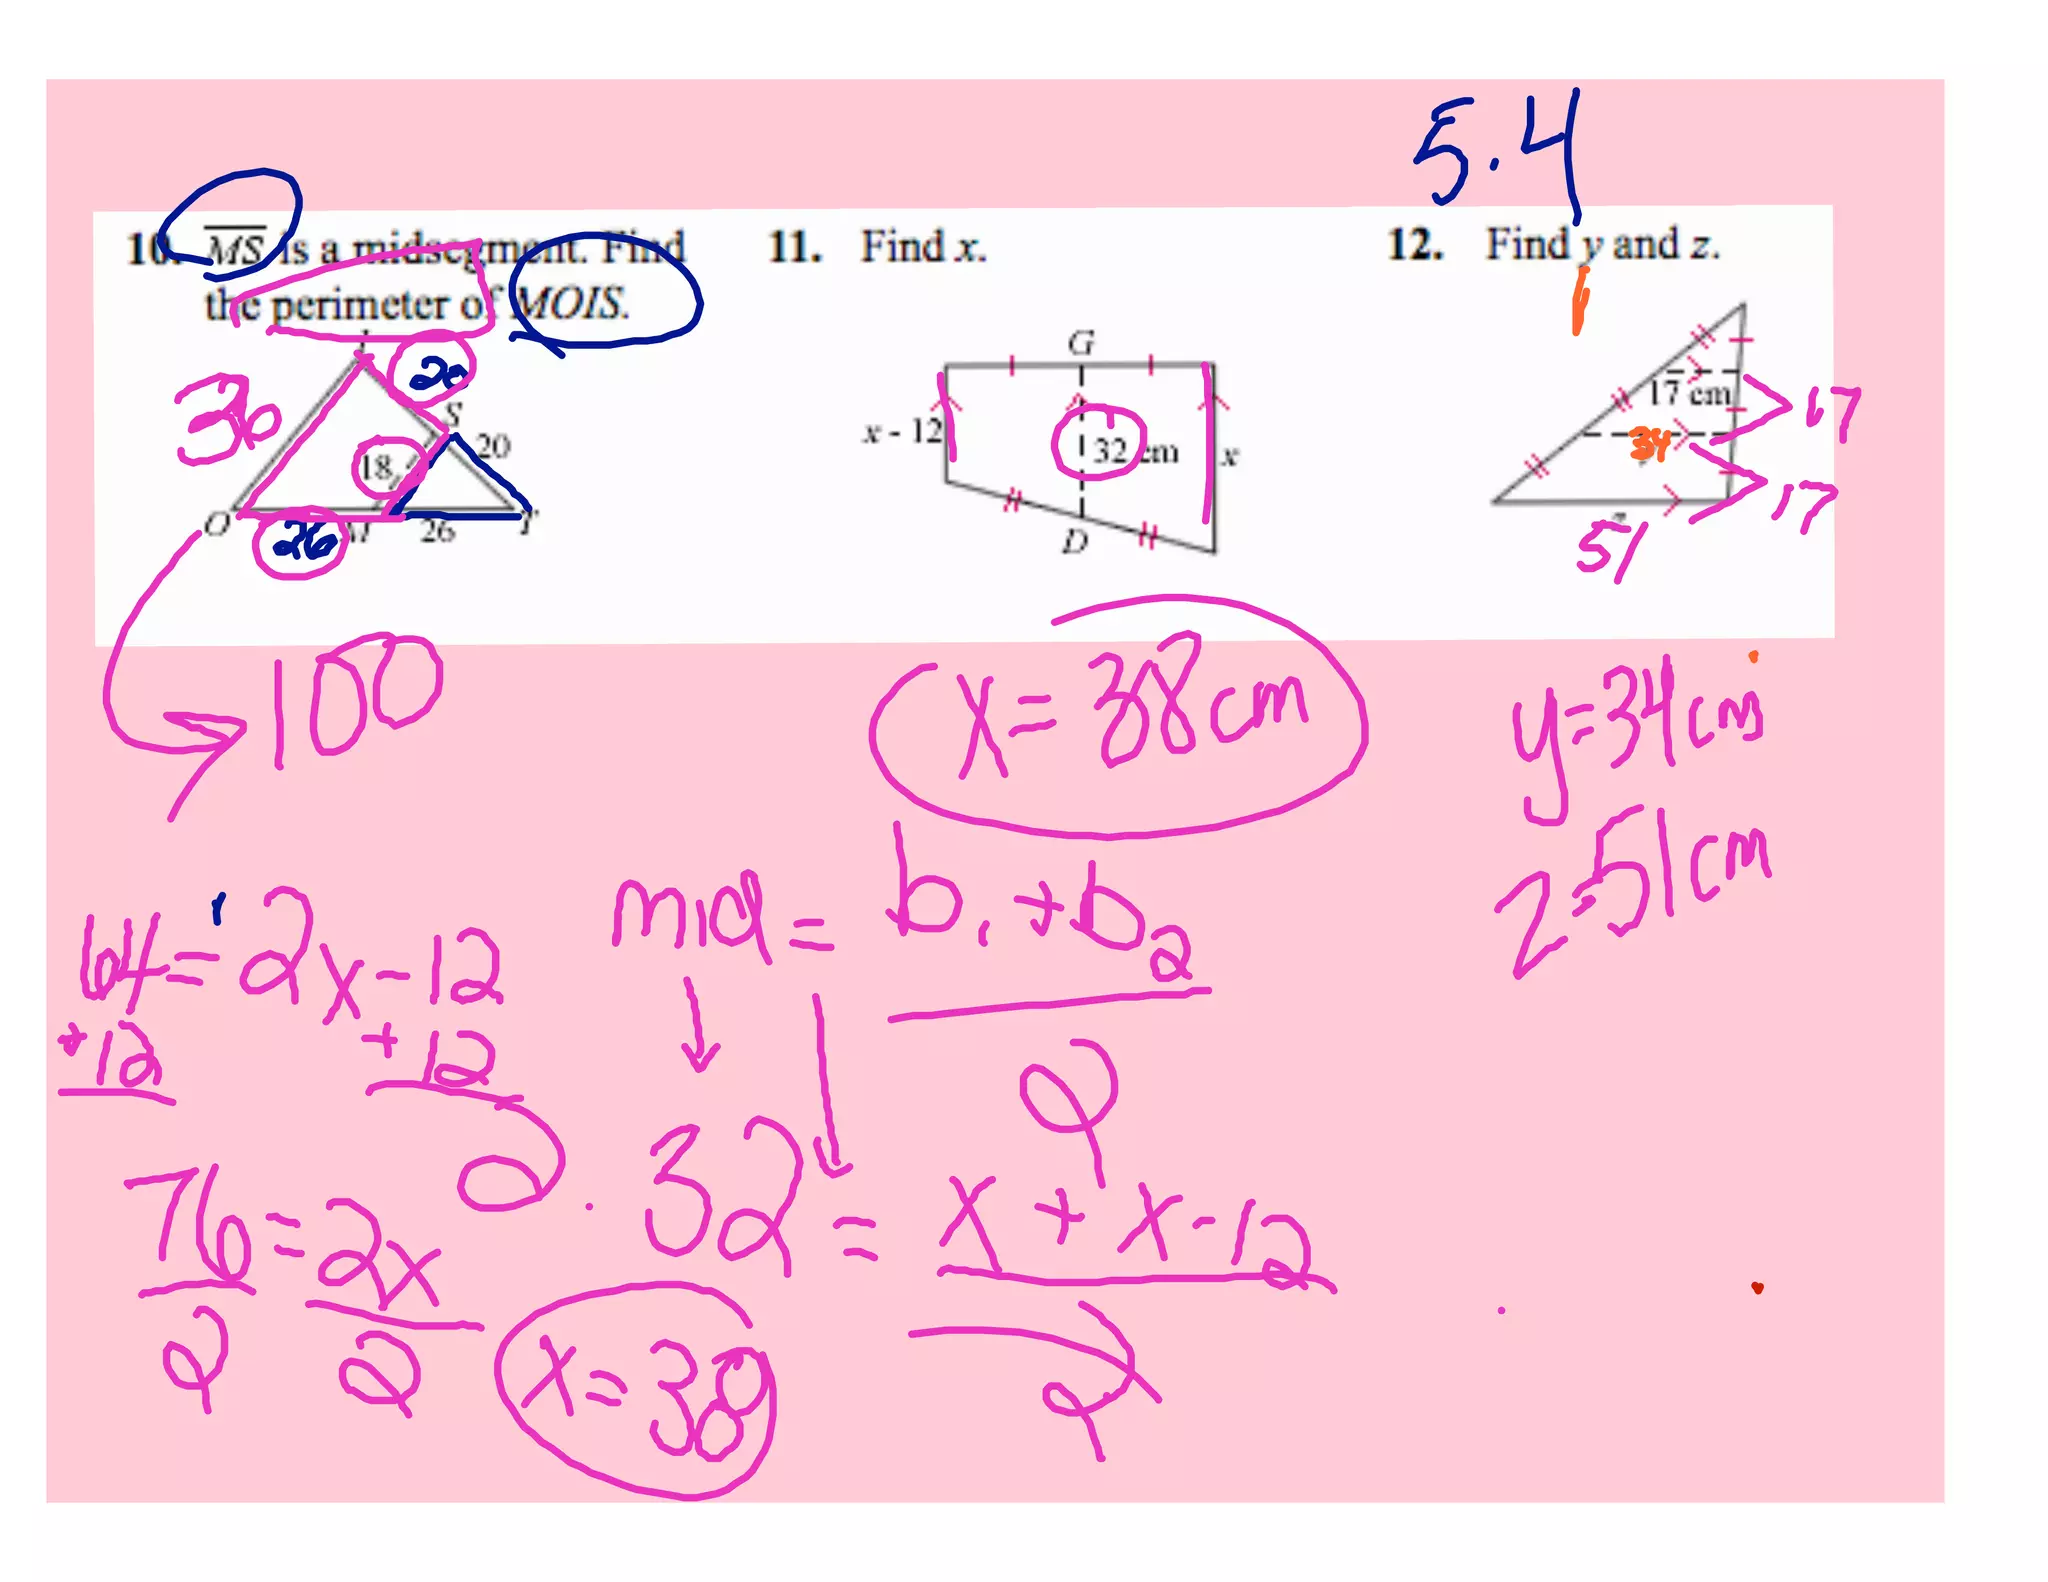 5.4
10. MS is a midsegment. Find
the perimeter of MOIS.
11. Find x.
12. Find y and z.
I
20
36
S
20
18
O
26
M
26
T
G
x - 12
32 cm
x
D
17 cm
17
34
17
51
100
x = 38 cm
y = 34 cm
z = 51 cm
64 = 2x - 12
+12 +12
76 = 2x
2 2
x = 38
mid = b1 + b2
2
2 · 32 = x + x - 12
2